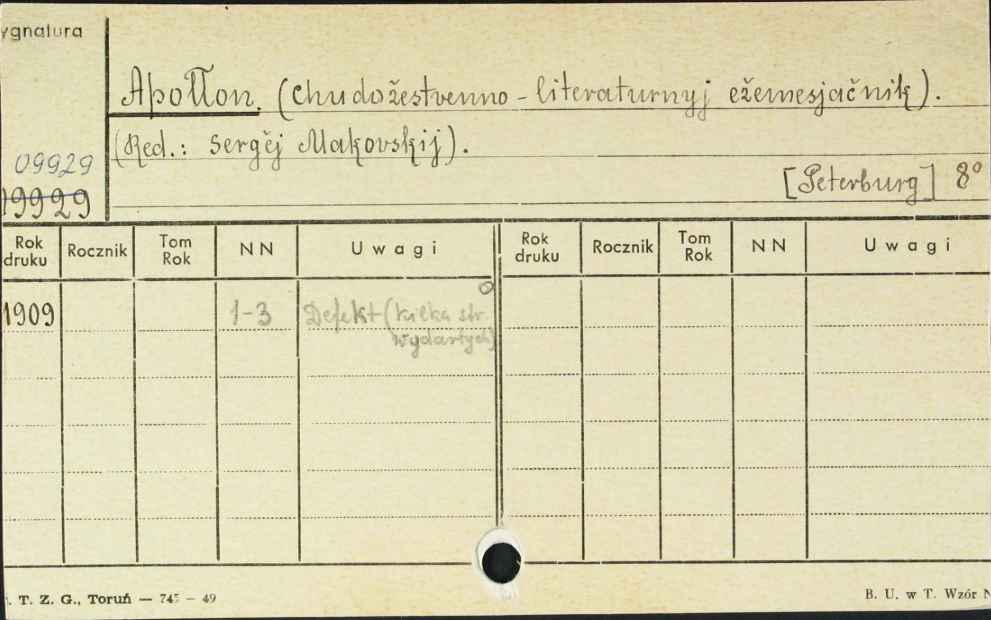 ygnatura
Apollon. (Chudožestvenno - literaturnyj ežemesjačnik).
(Red.: Sergěj Makovskij).
09929
19929
[Peterburg] 8°
Rok druku Rocznik Tom Rok NN Uwagi Rok druku Rocznik Tom Rok NN Uwagi
1909 1-3 Defekt (kilka str.
wydartych)
. T. Z. G., Toruń — 745 — 49
B. U. w T. Wzór N